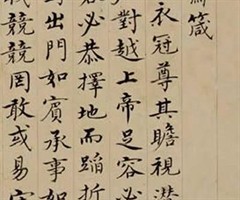 箴
衣冠尊其瞻視潛
對越上帝足容必
容必恭擇地而蹈折
出門如賓承事如
兢兢罔敢或易